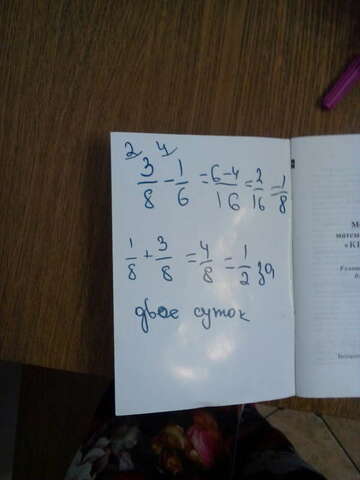 2 4
3/8 - 1/6 = 6-4/16 = 2/16 = 1/8
1/8 + 3/8 = 4/8 = 1/2 за
двое суток